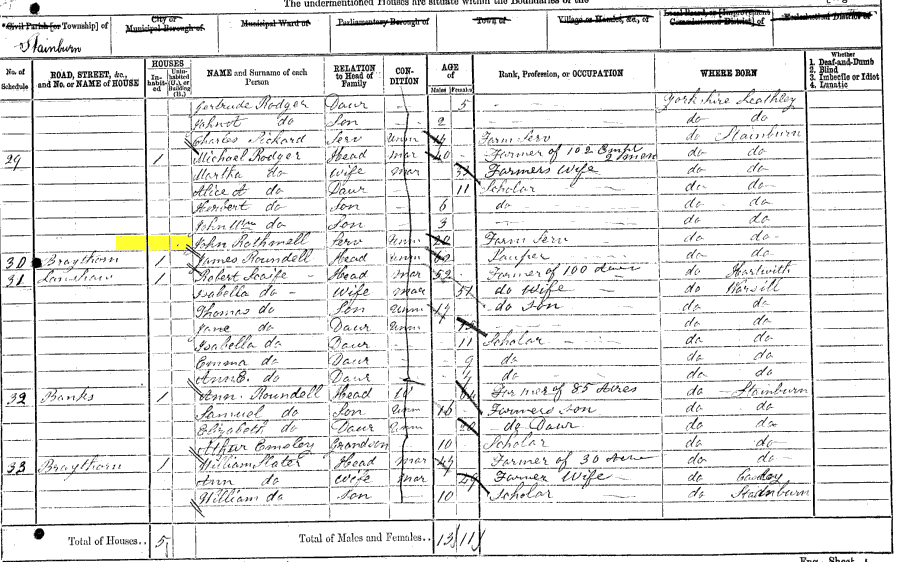 The undermentioned Houses are situate within the Boundaries of the
Civil Parish [or Township] of City or Municipal Borough of Municipal Ward of Parliamentary Borough of Town of Village or Hamlet, &c., of Local Board, or [Improvement Commissioners District] of Ecclesiastical District of
Stainburn
No. of Schedule ROAD, STREET, &c., and No. or NAME of HOUSE HOUSES Inhabited Uninhabited (U.), or Building (B.) NAME and Surname of each Person RELATION to Head of Family CONDITION AGE of Males Females Rank, Profession, or OCCUPATION WHERE BORN Whether 1. Deaf-and-Dumb 2. Blind 3. Imbecile or Idiot 4. Lunatic
Gertrude Rodger Daur — 5 Yorkshire Leathley
do Son — 2 do do
Charles Pickard Serv Unm 14 Farm Serv do Stainburn
29 1 Michael Rodger Head Mar 40 Farmer of 102 Empl 2 men do do
Martha do Wife Mar Farmers Wife do do
Alice A do Daur 11 Scholar do do
Herbert do Son 6 do do do
John Wm do Son 3 do do
John Rothwell Serv Unm Farm Serv do do
30 Braythorn 1 James Roundell Head Unm Pauper do do
31 Lanshaw 1 Robert Scaife Head Mar 52 Farmer of 100 do Hartwith
Isabella do Wife Mar 51 do Wife do Warsill
Thomas do Son Unm 17 do Son do do
Jane do Daur Unm do do
Isabella do Daur 11 Scholar do do
Emma do Daur 9 do do do
Ann E. do Daur do do do
32 Banks 1 Ann Roundell Head Farmer of 85 Acres do Stainburn
Samuel do Son Unm 16 Farmers son do do
Elizabeth do Daur Unm do Daur do do
Emsley Grandson 10 Scholar do do
33 Braythorn 1 William Slater Head Mar 47 Farmer of 30 Acre do do
Ann do Wife Mar 49 Farmer Wife do
William do Son 10 Scholar do Stainburn
Total of Houses.. 5 Total of Males and Females.. 13 11
Eng. Sheet